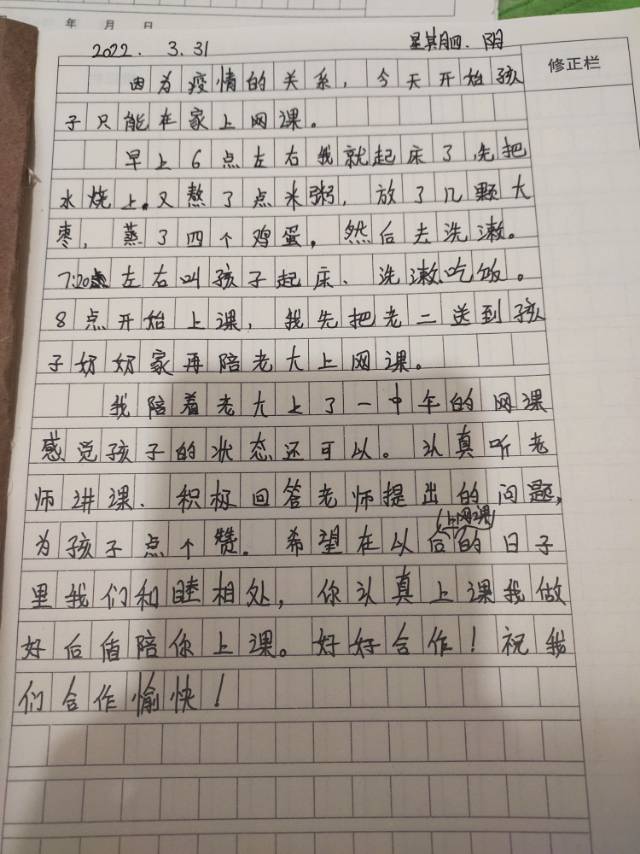 年 月 日
2022. 3.31 星期四. 阴
修正栏
因为疫情的关系，今天开始孩
子只能在家上网课。
早上6点左右我就起床了，先把
水烧上。又熬了点米粥，放了几颗大
枣，蒸了四个鸡蛋。然后去洗漱。
7:20点左右叫孩子起床、洗漱吃饭。
8点开始上课，我先把老二送到孩
子奶奶家再陪老大上网课。
我陪着老大上了一中午的网课
感觉孩子的状态还可以。认真听老
师讲课、积极回答老师提出的问题，
为孩子点个赞。希望在以后(上网课)的日子
里我们和睦相处，你认真上课我做
好后盾陪你上课。好好合作！祝我
们合作愉快！